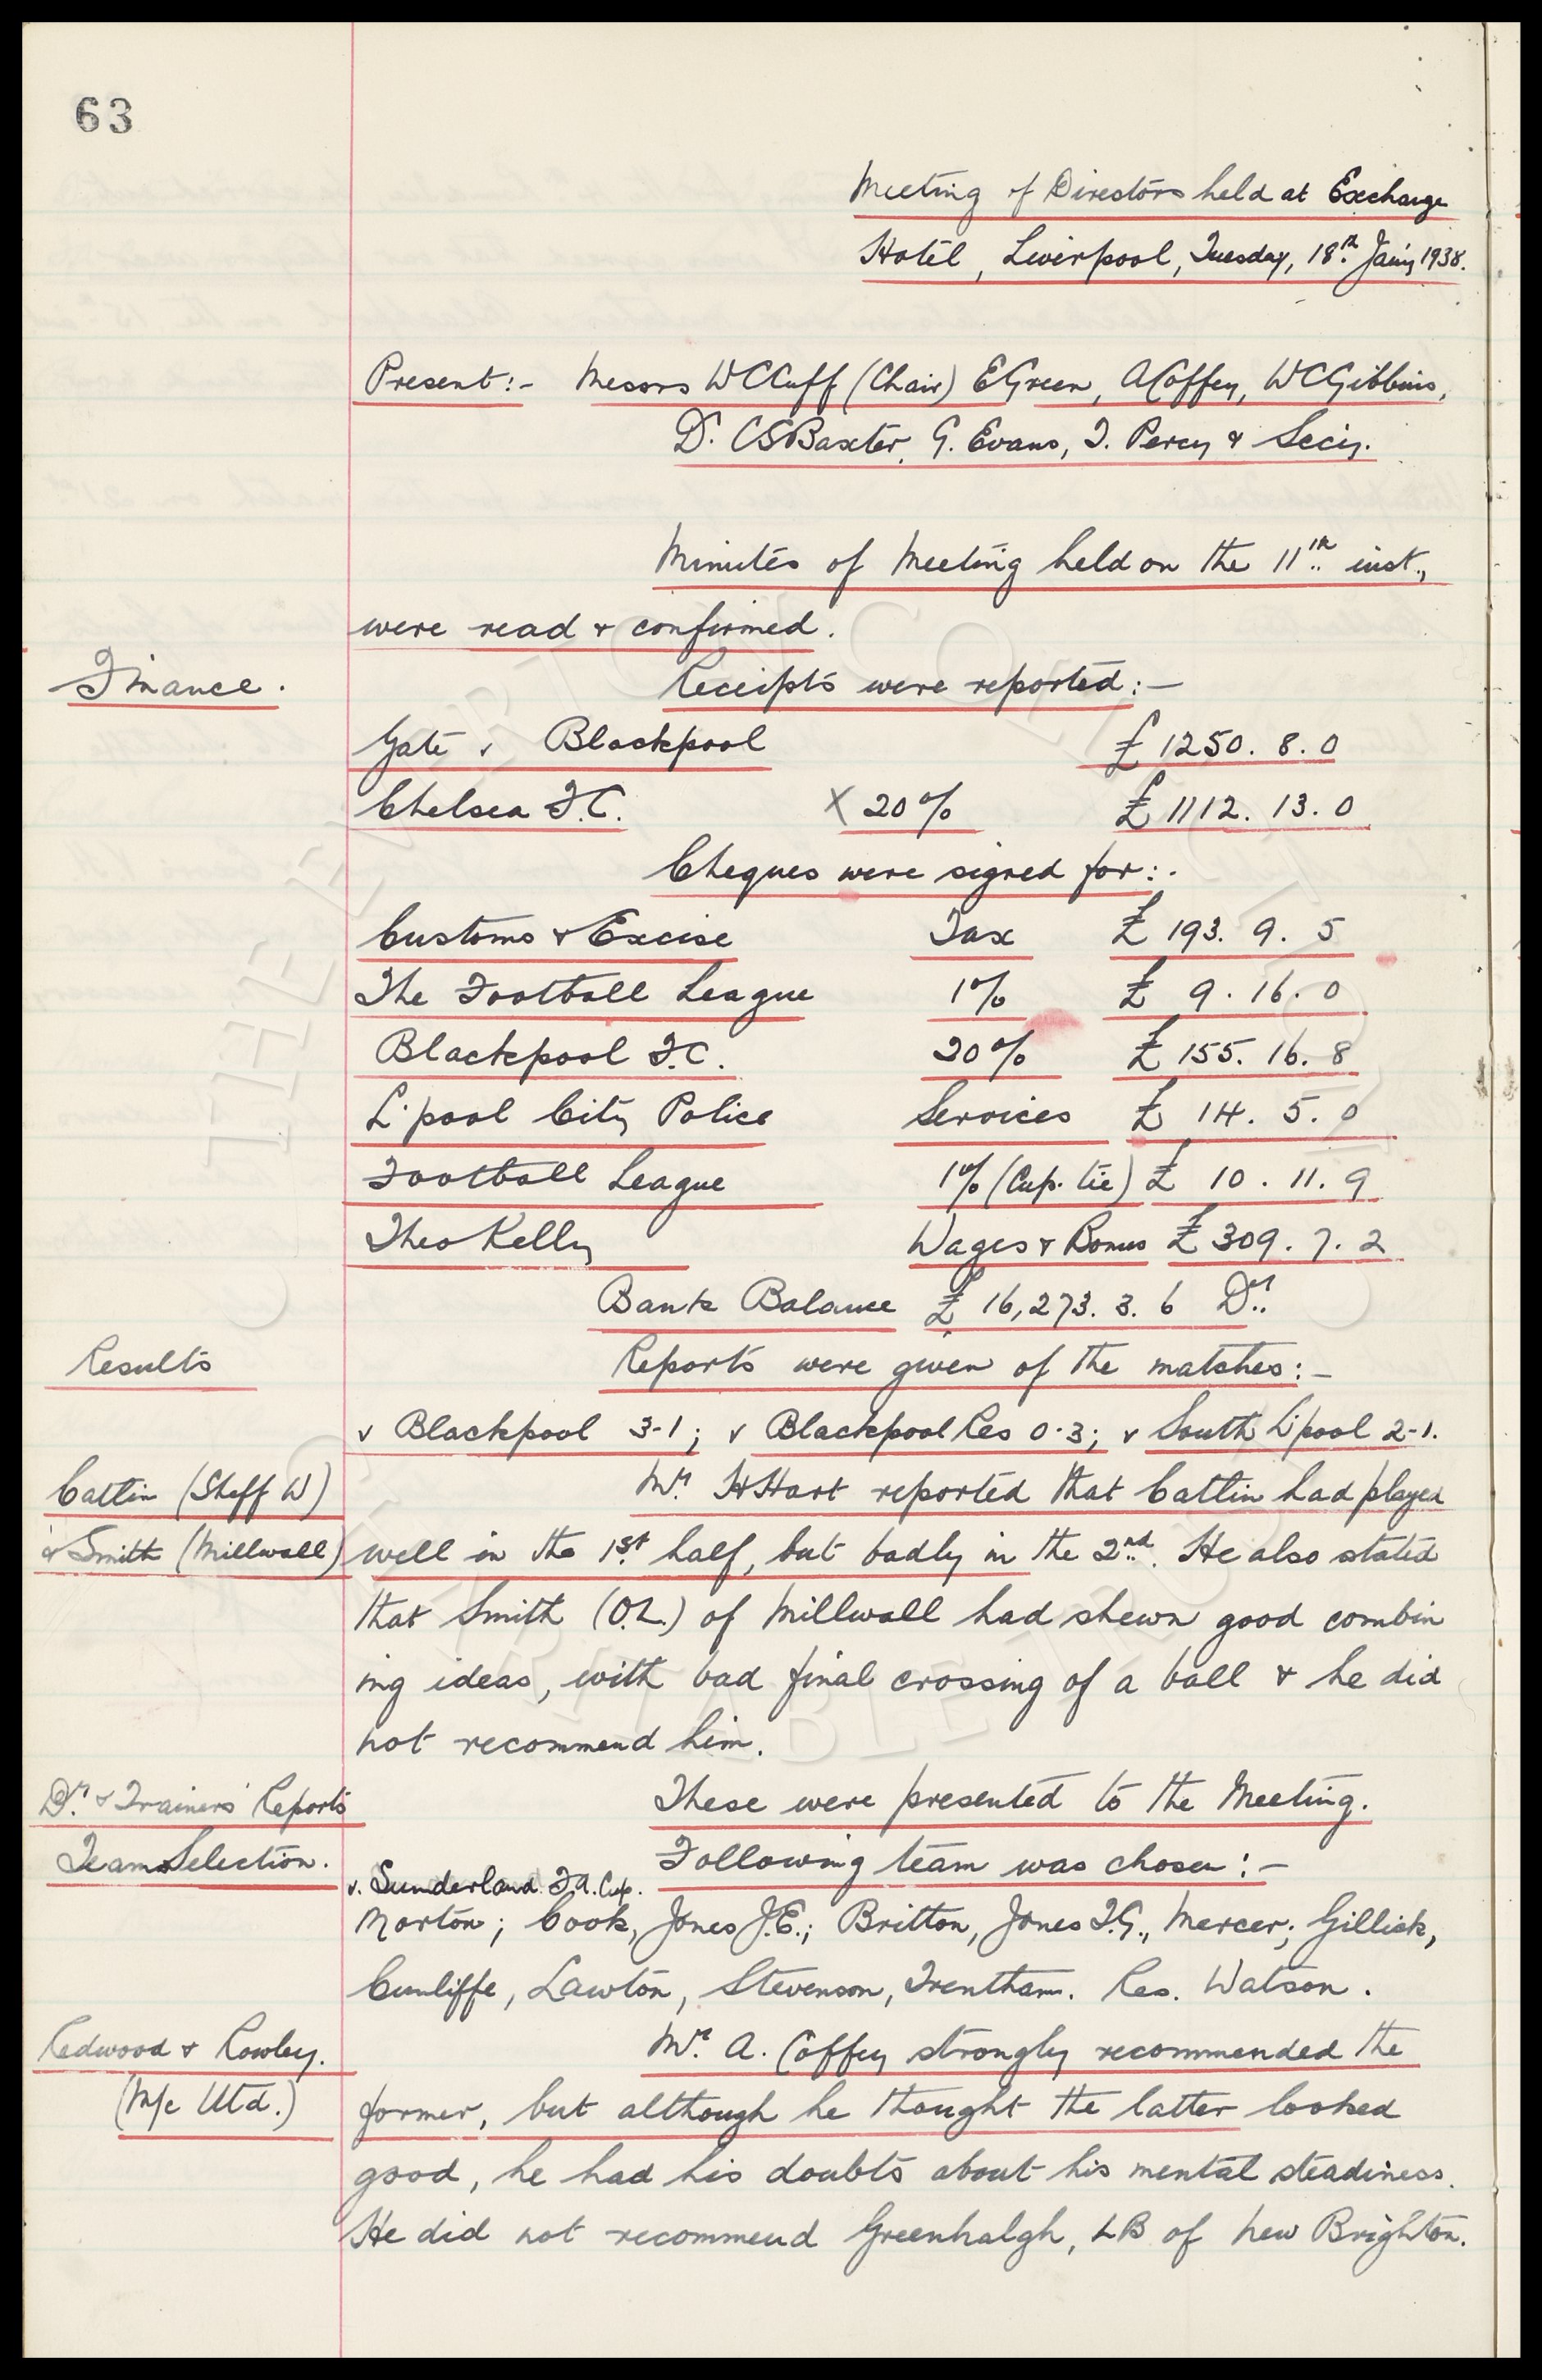 63
Meeting of Directors held at Exchange
Hotel, Liverpool, Tuesday, 18th Jan'y 1938.
Present:- Messrs W C Cuff (Chair) E Green, A Coffey, W C Gibbins,
Dr. C S Baxter, G. Evans, T. Percy & Secy.
Minutes of Meeting held on the 11th inst.,
were read & confirmed.
Finance.
Receipts were reported:-
Gate v Blackpool £1250. 8. 0
Chelsea F.C. X 20% £1112. 13. 0
Cheques were signed for:-
Customs & Excise Tax £193. 9. 5
The Football League 1% £ 9. 16. 0
Blackpool F.C. 20% £155. 16. 8
L'pool City Police Services £ 14. 5. 0
Football League 1% (Cup. tie) £ 10. 11. 9
Theo Kelly Wages & Bonus £309. 7. 2
Bank Balance £16,273. 3. 6 Dr.
Results
Reports were given of the matches:-
v Blackpool 3-1; v Blackpool Res 0-3; v South L'pool 2-1.
Cattlin (Sheff W)
Mr. H Hart reported that Cattlin had played
& Smith (Millwall)
well in the 1st half, but badly in the 2nd. He also stated
that Smith (O.L.) of Millwall had shewn good combin
ing ideas, with bad final crossing of a ball & he did
not recommend him.
Dr. & Trainers' Reports
These were presented to the Meeting.
Team Selection.
Following team was chosen:-
v. Sunderland F.A. Cup.
Morton; Cook, Jones J.E.; Britton, Jones T.G., Mercer; Gillick,
Cunliffe, Lawton, Stevenson, Trentham. Res. Watson.
Redwood & Rowley.
(M/c Utd.)
Mr. A. Coffey strongly recommended the
former, but although he thought the latter looked
good, he had his doubts about his mental steadiness.
He did not recommend Greenhalgh, LB of New Brighton.